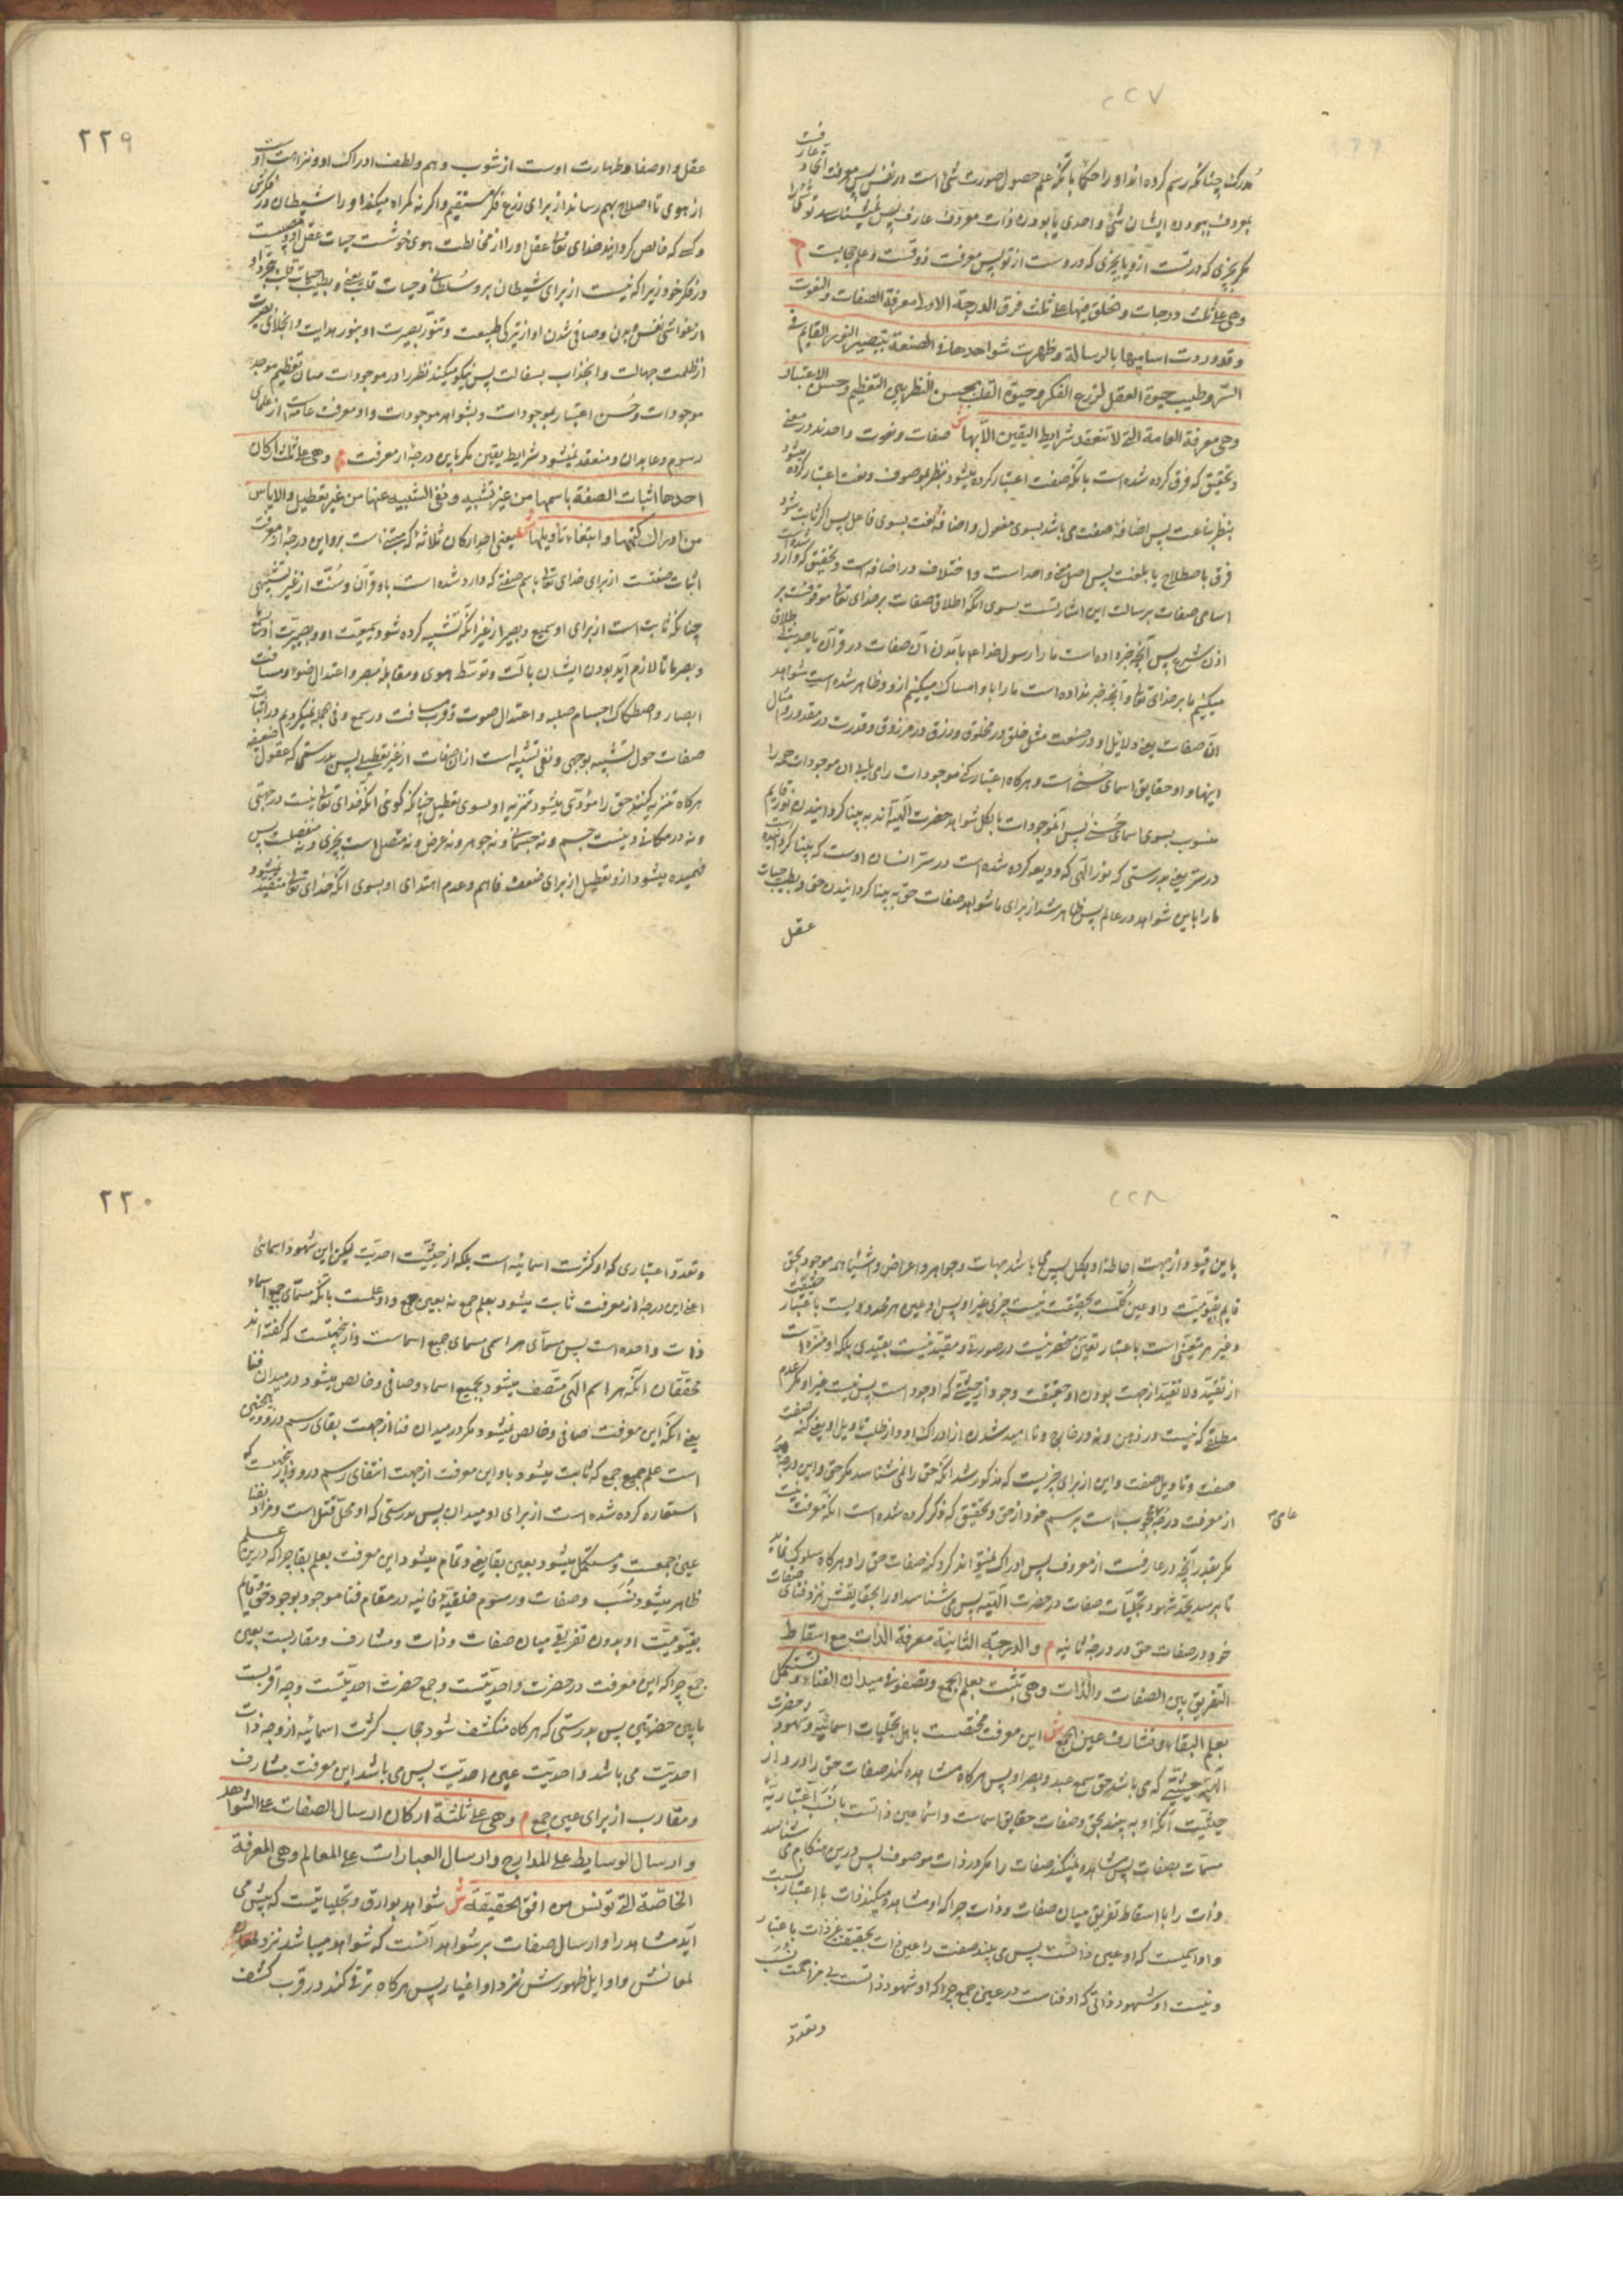 ۲۲۷
مدرک چنانکه رسم کرده‌اند او را حکما بآنکه علم حصول صورت شئ است در نفس پس معرفت اتحاد عارفست
بمعروف ببودن ایشان شئ واحدی یا بودن ذات معروف عارف پس نمیشناسد تو
مگر بچیزی که در تست ازو یا بچیزی که دروست از تو پس معرفت ذوقست و علم حجابست م
وهی علی ثلث درجات والخلق فیها علی ثلث فرق الدرجة الاولی معرفة الصفات والنعوت
وقد وردت اسامیها بالرسالة وظهرت شواهدها فی الصنعة بتبصیر النور القایم فی
السّر وطیب حیوة العقل لزرع الفکر وحیوة القلب بحسن النظر بین التعظیم وحسن الاعتبار
وهی معرفة العامة التی لا تنعقد شرایط الیقین الّا بها ش صفات ونعوت واحدند در معنی
وتحقیق که فرق کرده شده است بآنکه صفت اعتبار کرده میشود بنظر بموصوف ونعت اعتبار کرده میشود
بنظر بناعت پس اضافهٔ صفت می باشد بسوی مفعول واضافهٔ نعت بسوی فاعل پس اگر ثابت شود
فرق باصطلاح یا بلغت پس اصل معنی واحد است واختلاف در اضافه است وتحقیق که وارد شده است
اسامی صفات برسالت این اشارتست بسوی آنکه اطلاق صفات بر خدای تعالی موقوفست بر
اذن شرع پس آنچه خبر داده است ما را رسول خدا ع بآمدن آن صفات در قرآن یا حدیث اطلاق
میکنیم ما بر خدای تعالی وآنچه خبر نداده است ما را باو امساک میکنیم ازو وظاهر شده است شواهد
آن صفات یعنی دلایل او در صنعت مثل خلق در مخلوق ورزق در مرزوق وقدرت در مقدور وامثال
اینها واو حقایق اسمای حسنی است وهرگاه اعتبار کنی موجودات را می یابی آن موجودات همه را
منسوب بسوی اسمای حسنی پس آن موجودات بالکل شواهد حضرت الهیّه‌اند به بینا گردانیدن نور قایم
در سرّ یعنی بدرستی که نور الهی که ودیعه کرده شده است در سرّ انسان اوست که بینا گردانیده است
ما را باین شواهد در عالم پس ظاهر شد از برای ما شواهد صفات حق به بینا گردانیدن حق وبطیب حیات
عقل
۲۲۹
عقل واو صفا وطهارت اوست از شوب وهم ولطف ادراک او ونزاهت اوست
از هوی تا اصلاح بهم رساند از برای زرع فکر مستقیم واگر نه گمراه میکند او را شیطان در فکرش
وکسی که خالص گرداند خدای تعالی عقل او را از مخالطت هوی خوشست حیات عقل او
در فکر خود زیرا که نیست از برای شیطان برو سلطانی وحیات قلب یعنی وبطیب حیات قلب بتجرد او
از غواشی نفس وبدن وصافی شدن او از تیرگی طبیعت وتنوّر بصیرت او بنور هدایت وانجلای بصیرت
از ظلمت جهالت وانجذاب بسفالت پس نیکو میکند نظر را در موجودات میان تعظیم موجد
موجودات وحُسن اعتبار بموجودات وبشواهد موجودات واو معرفت عامه است از علمای
رسوم وعابدان ومنعقد نمیشود شرایط یقین مگر باین درجه از معرفت م وهی علی ثلثة ارکان
احدها اثبات الصفة باسمها من غیر تشبیه ونفی التشبیه عنها من غیر تعطیل والایاس
من ادراک کنهها وابتغاء تأویلها ش یعنی احد ارکان ثلاثه که مبتنی است برو این درجه از معرفت
اثبات صفتست از برای خدای تعالی باسم صفتی که وارد شده است باو قرآن وسُنّت از غیر تشبیهی
چنانکه ثابت است از برای او سمیع وبصیر از غیر آنکه تشبیه کرده شود سمیعیّت او وبصیریّت او
وبصر ما تا لازم آید بودن ایشان بآلت وتوسّط هوی ومقابلهٔ مبصر واعتدال ضوء ومسافت
ابصار واصطکاک اجسام صلبه واعتدال صوت وقرب مسافت در سمع وفی الجمله نمیگردیم در اثبات
صفات حول تشبیه بوجهی ونفی تشبیه است از آن صفات از غیر تعطیلی پس بدرستی که عقول ضعیفه
هرگاه تنزیه کنند حق را مؤدّی میشود تنزیه او بسوی تعطیل چنانکه گوئی آنکه خدای تعالی نیست در جهتی
ونه در مکان ونیست جسم ونه جسمانی ونه جوهر ونه عرض ونه متصل است بچیزی ونه منفصلست پس
فهمیده میشود ازو تعطیل از برای ضعف فاهم وعدم اهتدای او بسوی آنکه خدای تعالی متقید نمیشود
۲۲۸
باین قیود از جهت احاطهٔ او بکل پس می باشد جهات وجواهر واعراض واشیا همه موجود بحق
قایم بقیومیت واو عین کلّست بحقیقت نیست چیزی غیر او پس او عین هر محدودیست باعتبار حقیقت
وغیر هر متعینی است باعتبار تعین منحصر نیست در صورتی ومقیّد نیست بقیدی بلکه او منزه است
از تقیّد ولا تقیّد از جهت بودن او حقیقت وجود از حیثیتی که او وجود است پس نیست غیر او مگر عدم
مطلقی که نیست در ذهن ونه در خارج ونا امید شدن از ادراک او واز طلب تاویل او یعنی کنه صفت
صفت وتاویل صفت واین از برای چیزیست که مذکور شد آنکه حق را نمی شناسد مگر حق واین درجه
از معرفت درجهٔ محجوب است برسم خود از حق وتحقیق که ذکر کرده شده است آنکه معرفت نیست
عامی
مگر بقدر آنچه در عارفست از معروف پس ادراک نمیتواند کرد کنه صفات حق را وهرگاه سلوک نماید
تا برسد بحد شهود تجلیّات صفات در حضرت الهیّه پس می شناسد او را بحقایقش نزد فنای صفات
خود در صفات حق در درجهٔ ثانیه م والدرجة الثانیة معرفة الذات مع اسقاط
التفریق بین الصفات والذات وهی تثبت بعلم الجمع وتصفو فی میدان الفناء وتستکمل
بعلم البقاء وتشارف عین الجمع ش این معرفت مختصست باهل تجلیات اسمائیه وشهود حضرت
الهیّه حیثیّتی که می باشد حق سمع عبد وبصر او پس هرگاه مشاهده کند صفات حق را در
حیثیّت آنکه او به بیند بحق وصفات حقایق اسماست واسما عین ذاتست با نسب اعتباریّه
مسمّات بصفات پس مشاهده نمیکند صفات را مگر در ذات موصوف پس درین هنگام می شناسد
ذات را با اسقاط تفریق میان صفات وذات چرا که او مشاهده میکند ذات را باعتبار نسبت
واو اسمیست که او عین ذاتست پس می بیند صفت را عین ذات بحقیقت وغیر ذات باعتبار
ونیست او شهود ذاتی که او فناست در عین جمع چرا که او شهود ذاتست بی مزاحمت نسب
وتعدد
۲۳۰
وتعدد اعتباری که او کثرت اسمائیه است بلکه از حیثیّت احدیّت لیکن این شهود اسمائی
اعنی این درجه از معرفت ثابت میشود بعلم جمع نه بعین جمع واو علمست بآنکه مسمّای جمیع اسماء
ذات واحده است پس مسمّای هر اسمی مسمای جمیع اسماست وازینجهتست که گفته‌اند
محققان آنکه هر اسم الهی متّصف میشود بجمیع اسماء وصافی وخالص میشود در میدان فنا
یعنی آنکه این معرفت صافی وخالص نمیشود مگر در میدان فنا از جهت بقای رسم درو
است علم جمع که ثابت میشود باو این معرفت از جهت انتفای رسم درو وازینجهت که
استعاره کرده شده است از برای او میدان پس بدرستی که او محلّ قتل است ومراد بفنا
عین جمعست ومستکمل میشود بعین بقا یعنی وتمام میشود این معرفت بعلم بقا چرا که درین علم
ظاهر میشود نسب وصفات ورسوم خلقیّهٔ فانیه در مقام فنا موجود بوجود حق وقایم
بقیّومیّت او بدون تفریق میان صفات وذات ومشارف ومقاربست بعین
جمع چرا که این معرفت در حضرت واحدیّتست وجمع حضرت احدیّتست وجه اقربیت
ما بین حضرتین پس بدرستی که هرگاه منکشف شود حجاب کثرت اسمائیه از وجه ذات
احدیّت می باشد واحدیّت عین احدیّت پس می باشد این معرفت مشارف
ومقارب از برای عین جمع م وهی علی ثلثة ارکان ارسال الصفات علی الشواهد
وارسال الوسایط علی المدارج وارسال العبارات علی المعالم وهی المعرفة
الخاصّة التی تونس من افق الحقیقة ش شواهد بوارق وتجلیاتیست که پیش می
آید مشاهد را وارسال صفات بر شواهد آنست که شواهد میباشد نزد
لمعانش واوایل ظهورش نزد او اغیار پس هرگاه ترقی کند در قرب کشف